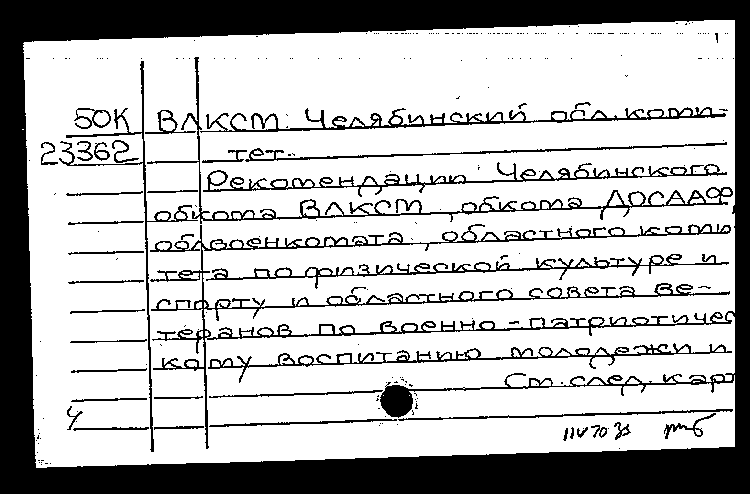 1
БОК ВЛКСМ. Челябинский обл. коми-
23362 тет.
Рекомендации Челябинского
обкома ВЛКСМ, обкома ДОСААФ,
облвоенкомата, областного коми
тета по физической культуре и
спорту и областного совета ве-
теранов по военно-патриотичес
кому воспитанию молодежи и
См. след. карт
Ч